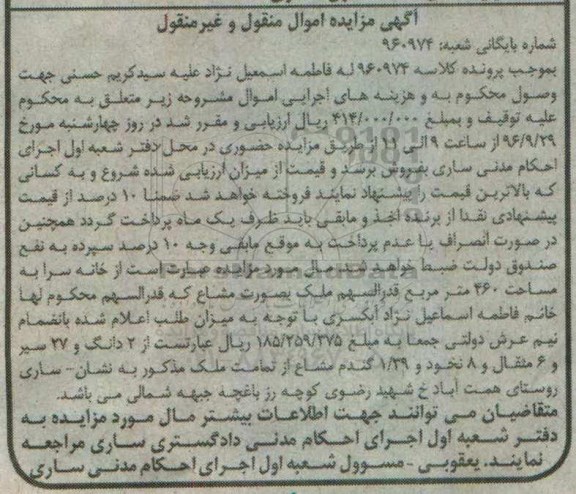 آگهی مزایده اموال منقول و غیرمنقول
شماره بایگانی شعبه: ۹۶۰۹۷۴
بموجب پرونده کلاسه ۹۶۰۹۷۴ له فاطمه اسمعیل نژاد علیه سیدکریم حسنی جهت
وصول محکوم به و هزینه های اجرایی اموال مشروحه زیر متعلق به محکوم
علیه توقیف و بمبلغ ۴۱۴/۰۰۰/۰۰۰ ریال ارزیابی و مقرر شد در روز چهارشنبه مورخ
۹۶/۹/۲۹ از ساعت ۹ الی ۱۱ از طریق مزایده حضوری در محل دفتر شعبه اول اجرای
احکام مدنی ساری بفروش برسد و قیمت از میزان ارزیابی شده شروع و به کسانی
که بالاترین قیمت را پیشنهاد نمایند فروخته خواهد شد ضمنا ۱۰ درصد از قیمت
پیشنهادی نقدا از برنده اخذ و مابقی باید ظرف یک ماه پرداخت گردد همچنین
در صورت انصراف یا عدم پرداخت به موقع مابقی وجه ۱۰ درصد سپرده به نفع
صندوق دولت ضبط خواهد شد. مال مورد مزایده عبارت است از خانه سرا به
مساحت ۴۶۰ متر مربع قدرالسهم ملک بصورت مشاع که قدرالسهم محکوم لها
خانم فاطمه اسماعیل نژاد آبکسری با توجه به میزان طلب اعلام شده بانضمام
نیم عرش دولتی جمعا به مبلغ ۱۸۵/۲۵۹/۳۷۵ ریال عبارتست از ۲ دانگ و ۲۷ سیر
و ۶ مثقال و ۸ نخود و ۱/۳۹ گندم مشاع از تمامت ملک مذکور به نشان- ساری
روستای همت آباد خ شهید رضوی کوچه رز باغچه جبهه شمالی می باشد.
متقاضیان می توانند جهت اطلاعات بیشتر مال مورد مزایده به
دفتر شعبه اول اجرای احکام مدنی دادگستری ساری مراجعه
نمایند. یعقوبی - مسوول شعبه اول اجرای احکام مدنی ساری